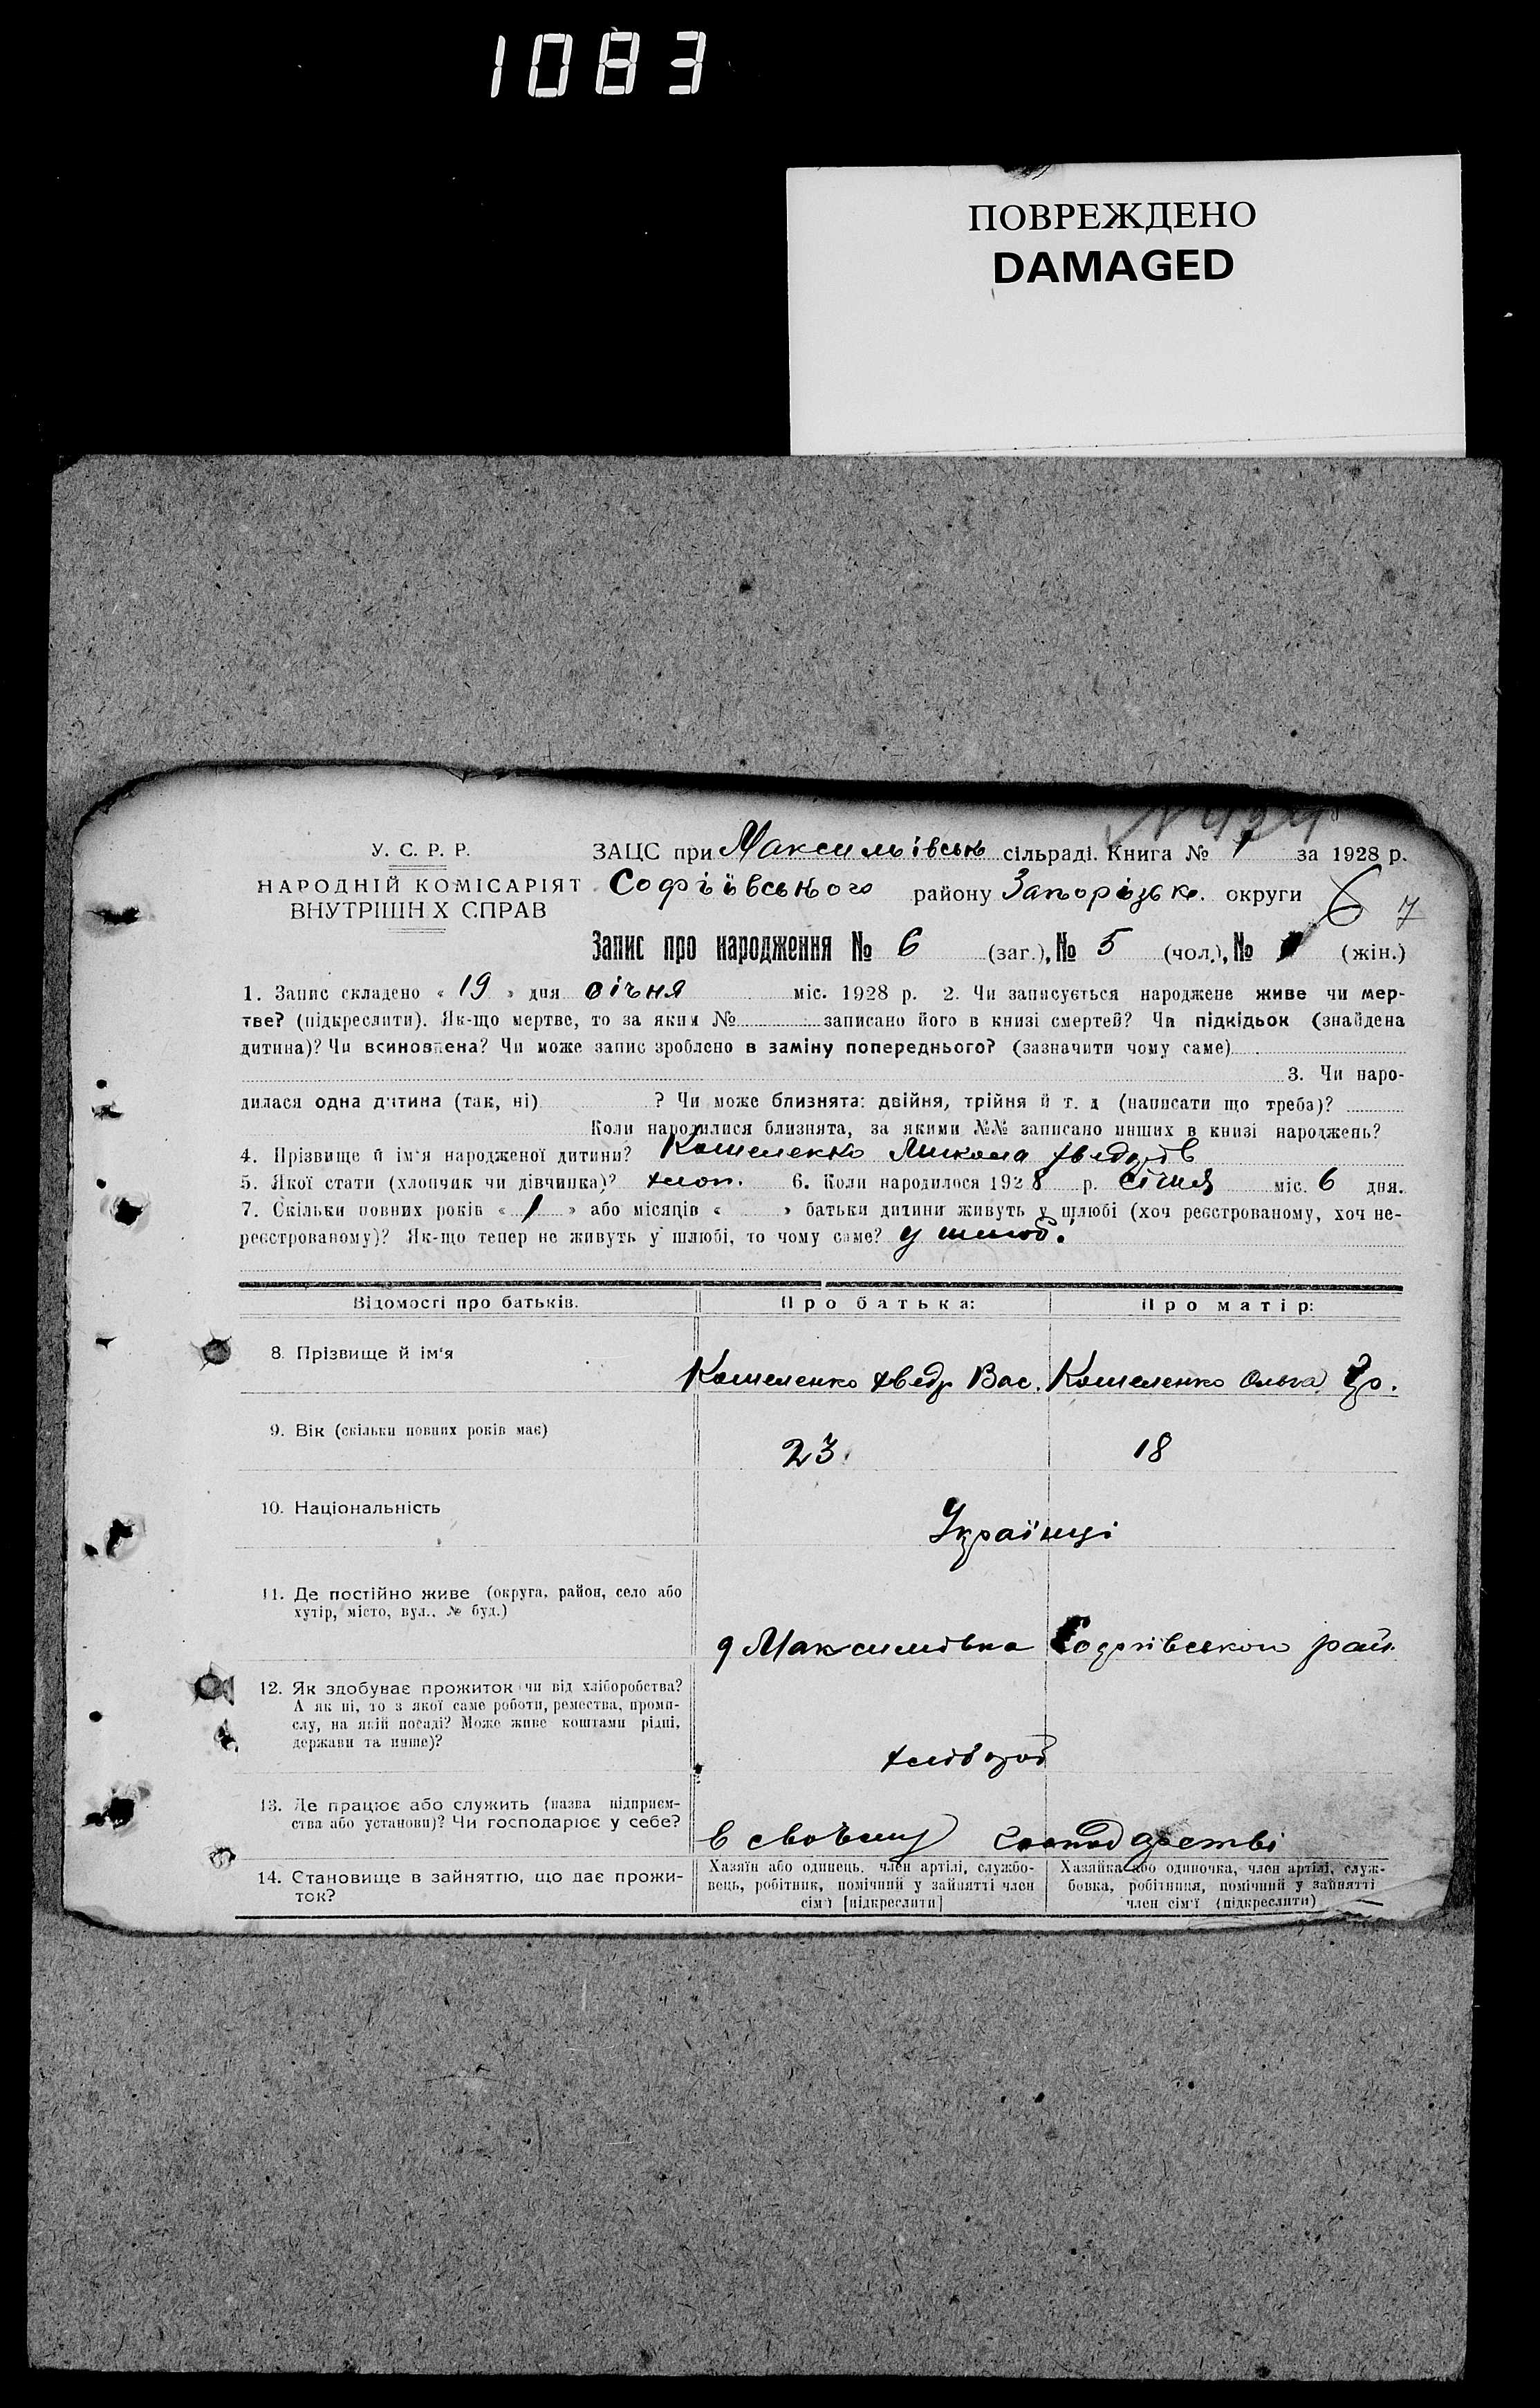 1083
ПОВРЕЖДЕНО
DAMAGED
У. С. Р. Р.
НАРОДНІЙ КОМІСАРІЯТ
ВНУТРІШН Х СПРАВ
ЗАЦС при Максимівськ сільраді. Книга № 1 за 1928 р.
Софіївського району Запорізьк. округи
6 7
Запис про народження № 6 (заг.), № 5 (чол.), № (жін.)
1. Запис складено « 19 » дня січня міс. 1928 р. 2. Чи записується народжене живе чи мер-
тве? (підкреслити). Як-що мертве, то за яким № записано його в книзі смертей? Чи підкідьок (знайдена
дитина)? Чи всиновлена? Чи може запис зроблено в заміну попереднього? (зазначити чому саме)
3. Чи наро-
дилася одна дитина (так, ні) ? Чи може близнята: двійня, трійня й т. д (написати що треба)?
Коли народилися близнята, за якими №№ записано инших в книзі народжень?
4. Прізвище й ім'я народженої дитини? Кошеленко Микола Хведорів
5. Якої стати (хлопчик чи дівчинка)? хлоп. 6. Коли народилося 1928 р. січня міс. 6 дня.
7. Скільки повних років « 1 » або місяців « » батьки дитини живуть у шлюбі (хоч реєстрованому, хоч не-
реєстрованому)? Як-що тепер не живуть у шлюбі, то чому саме? у шлюб.
Відомості про батьків. Про батька: Про матір:
8. Прізвище й ім'я
Кошеленко Хведр Вас. Кошеленко Ольга Гр.
9. Вік (скільки повних років має)
23. 18
10. Національність
Українці
11. Де постійно живе (округа, район, село або
хутір, місто, вул., № буд.)
Максимівка Софіївського рай.
12. Як здобуває прожиток чи від хліборобства?
А як ні, то з якої саме роботи, ремества, проми-
слу, на якій посаді? Може живе коштами рідні,
держави та инше)?
хлібороб
13. Де працює або служить (назва підприєм-
ства або установи)? Чи господарює у себе?
В своєму господарстві
14. Становище в зайняттю, що дає прожи-
ток?
Хазяїн або одинець, член артілі, службо-
вець, робітник, помічний у зайнятті член
сім'ї [підкреслити]
Хазяйка або одиночка, член артілі, служ-
бовка, робітниця, помічний у зайнятті
член сім'ї (підкреслити)